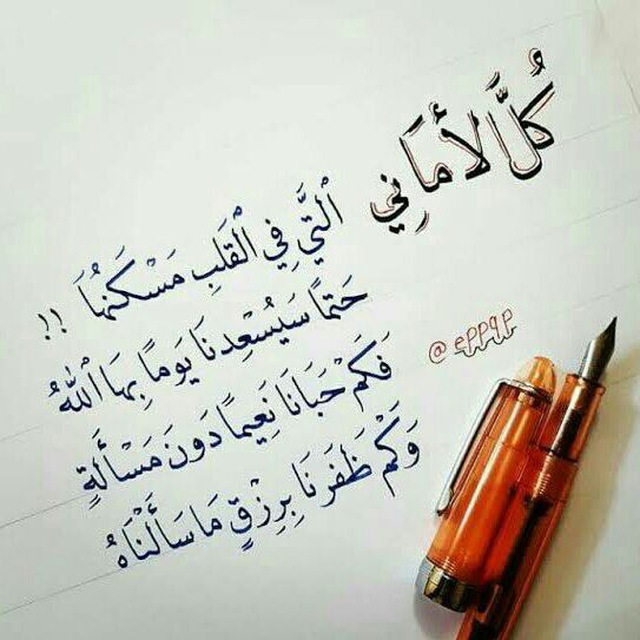 كُلَّ لأَمَانِي
الْتَّي فِي الْقَلَبِ مَسْكَنهُاَ !!
حَتمًا سَيُسْعِدنَا يَومًا بِهَا ٱللهُ
فَكَمْ حَبَانَا نَعِيمًا دَونَ مَسْأَلَةٍ
وَكَمْ ظَفَرنَا بِرِزْقٍ مَا سَأَلْنَاهُ
@eppqp